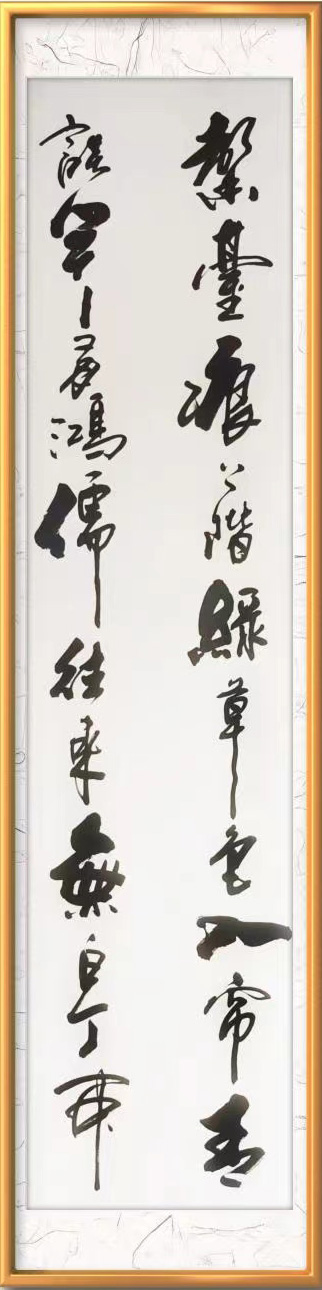 馨臺痕上階綠草色入帘青
談笑有鴻儒往來無白丁